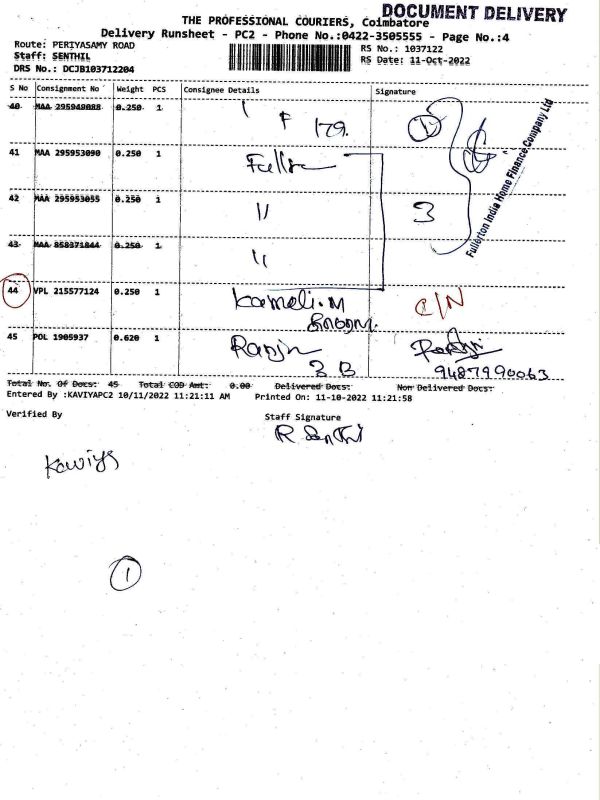 DOCUMENT DELIVERY
THE PROFESSIONAL COURIERS, Coimbatore
Delivery Runsheet - PC2 - Phone No.:0422-3505555 - Page No.:4
Route: PERIYASAMY ROAD
RS No.: 1037122
Staff: SENTHIL
RS Date: 11-Oct-2022
DRS No.: DCJB103712204
S No Consignment No Weight PCS Consignee Details Signature
40 MAA 295948088 0.250 1
F 179. 1
Fullerton India Home Finance Company Ltd
41 MAA 295953090 0.250 1
42 MAA 295953055 0.250 1 " 3
43 MAA 858371844 0.250 1 "
44 VPL 215577124 0.250 1 Kameli.M C/N
45 POL 1905937 0.620 1 Ranjn
3 B 9487990063
Total No. Of Docs: 45 Total COD Amt: 0.00 Delivered Docs: Non Delivered Docs:
Entered By :KAVIYAPC2 10/11/2022 11:21:11 AM Printed On: 11-10-2022 11:21:58
Verified By Staff Signature
R Senthil
Kaviya
1